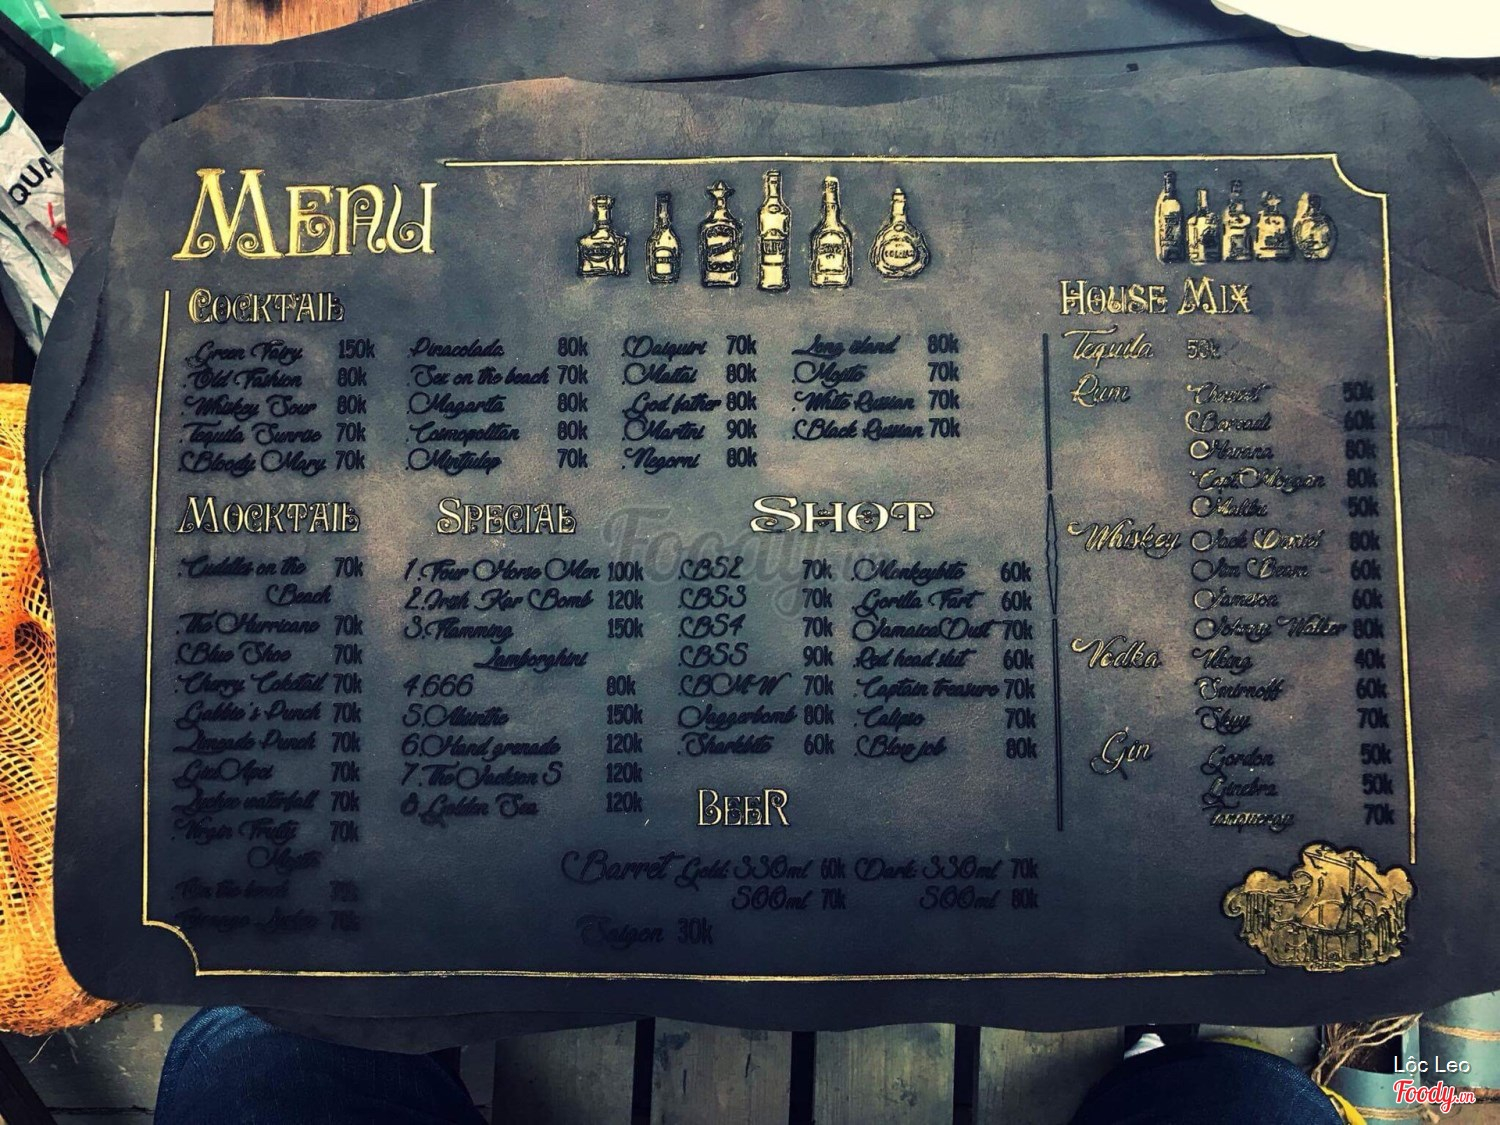 QUA
MENU
COCKTAIL
.Green Fairy 150k
.Old Fashion 80k
.Whiskey Sour 80k
.Tequila Sunrise 70k
.Bloody Mary 70k
.Pinacolada 80k
.Sex on the beach 70k
.Magarita 80k
.Cosmopolitan 80k
.Mintjulep 70k
.Daiquiri 70k
.Maitai 80k
.God father 80k
.Martini 90k
.Negorni 80k
.Long island 80k
.Mojito 70k
.White Russian 70k
.Black Russian 70k
MOCKTAIL
.Cuddles on the 70k
Beach
.The Hurricane 70k
.Blue Shoe 70k
.Cherry Cokctail 70k
.Gabbie's Punch 70k
.Limeade Punch 70k
.Gin Apci 70k
.Lychee waterfall 70k
.Virgin Fruity 70k
Mojito
SPECIAL
1.Four Horse Men 100k
2.Irish Kar Bomb 120k
3.Flamming 150k
Lamborghini
4.666 80k
5.Absinthe 150k
6.Hand grenade 120k
7.The Jackson 5 120k
8.Golden Sea 120k
SHOT
.BS2 70k
.BS3 70k
.BS4 70k
.BS5 90k
.BCM-W 70k
.Jaggerbomb 80k
.Sharkbite 60k
.Monkeybite 60k
.Gorilla Fart 60k
.Jamaica Dust 70k
.Red head slut 60k
.Captain treasure 70k
.Calipso 70k
.Blow job 80k
BEER
Barret Gold: 330ml 60k Dark: 330ml 70k
500ml 70k 500ml 80k
Saigon 30k
HOUSE MIX
Tequila 50k
Rum
Chauvet 50k
Barcadi 60k
Havana 80k
Capt. Morgan 80k
Malibu 50k
Whiskey Jack Daniel 80k
Jim Beam 60k
Jameson 60k
Johnny Walker 80k
Vodka Viking 40k
Smirnoff 60k
Skyy 70k
Gin Gordon 50k
Ginebra 50k
Tanqueray 70k
Foody.vn
Lộc Leo
Foody.vn